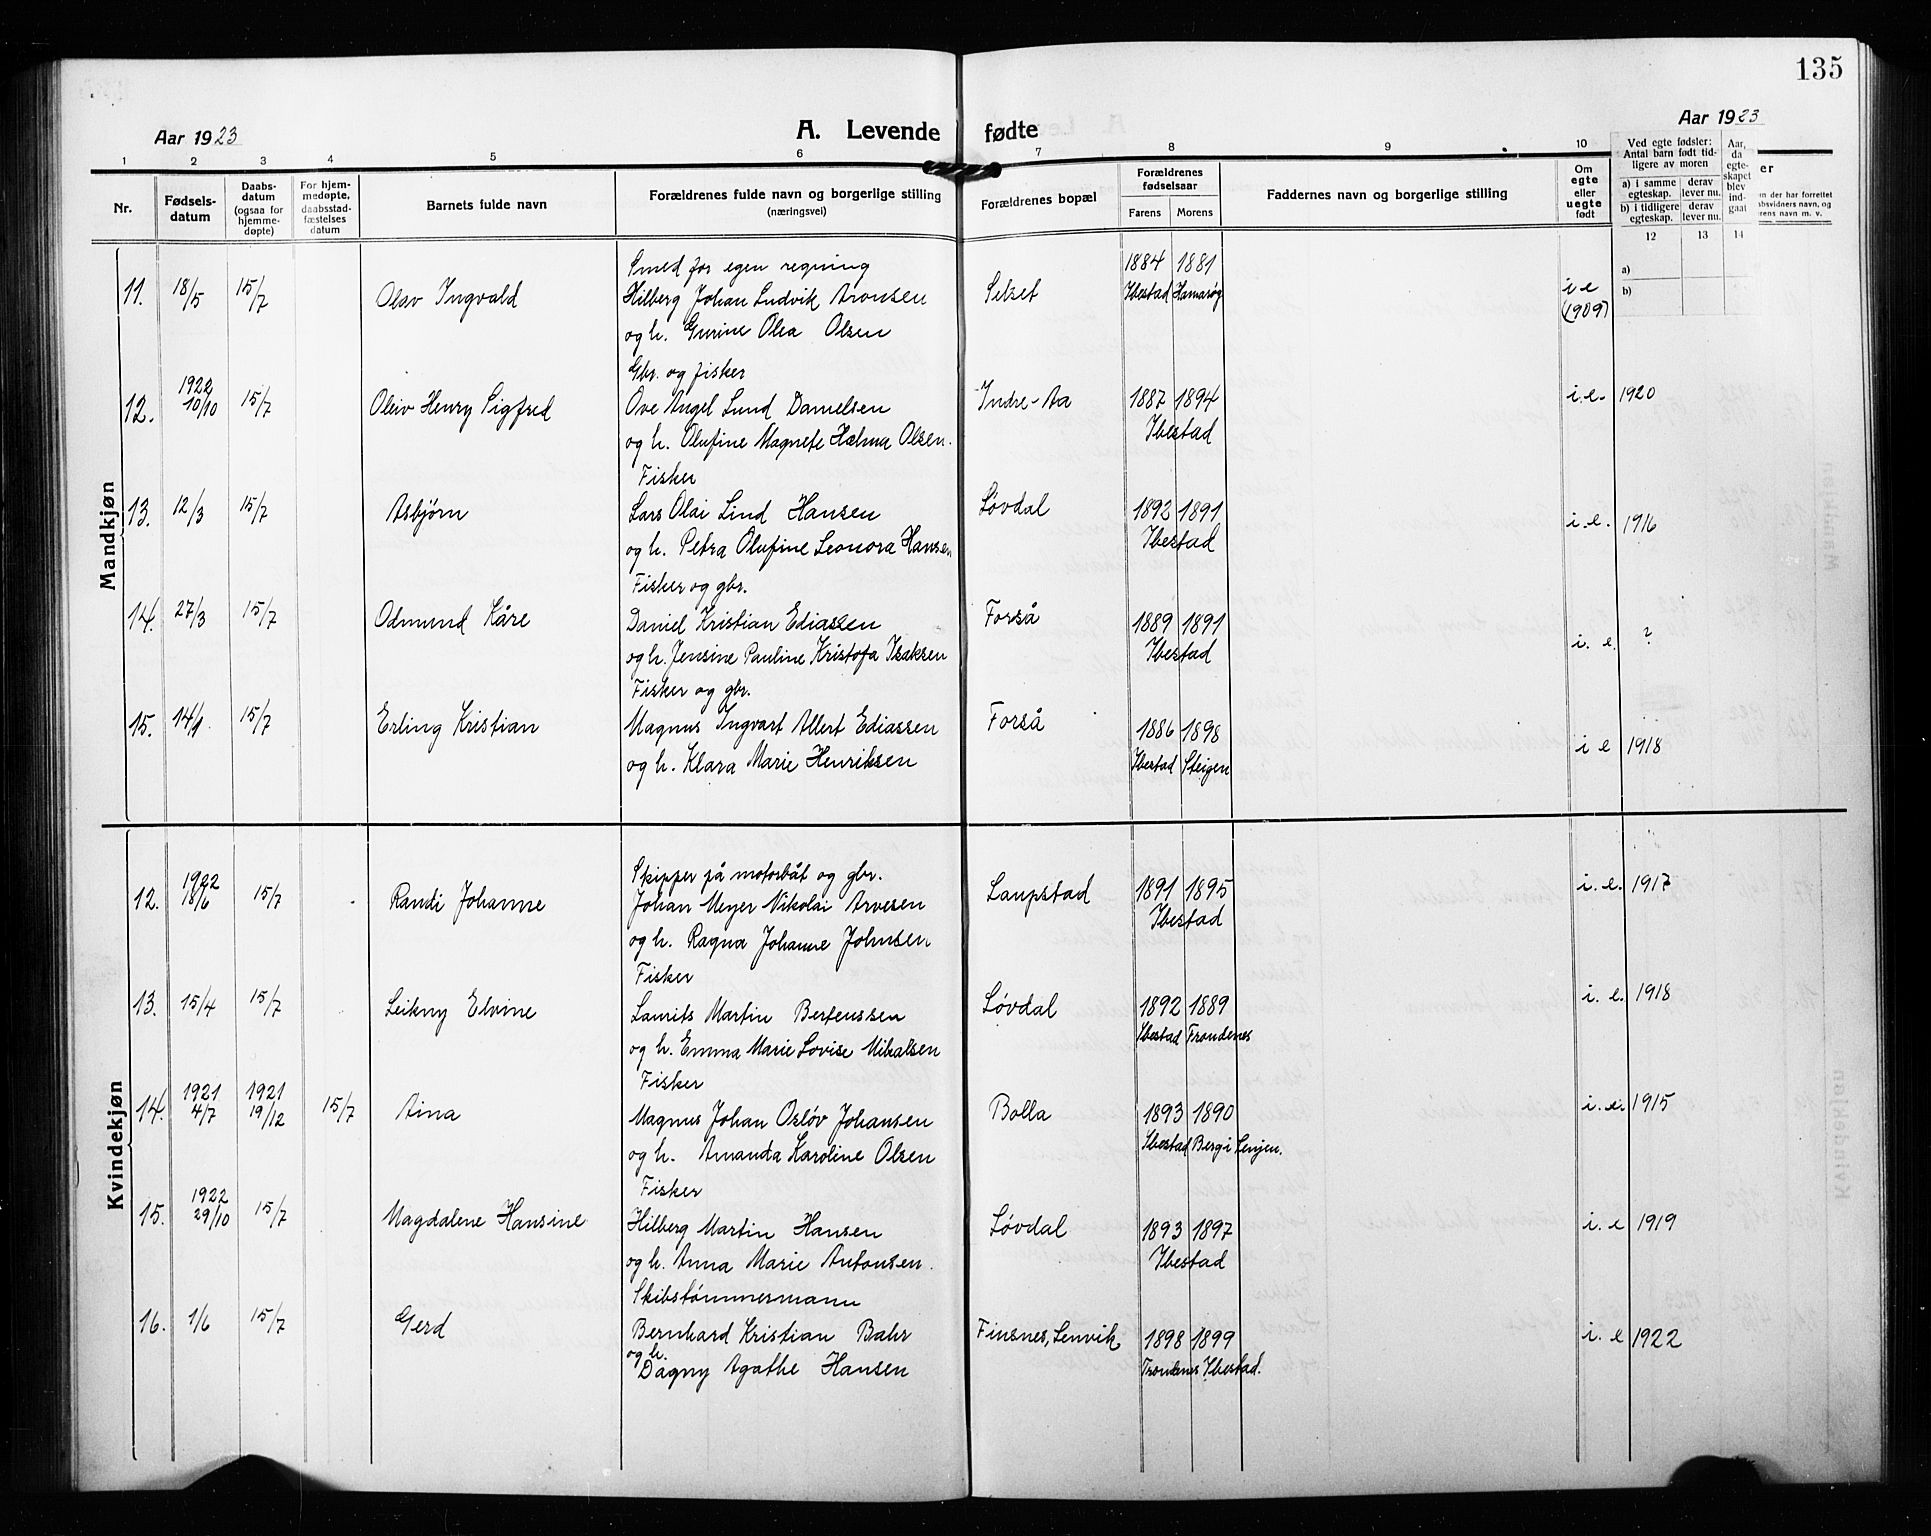 135
Aar 1923
A. Levende fødte
Aar 1923
1 2 3 4 5 6 7 8 9 10
Nr.
Fødsels-
datum
Daabs-
datum
(ogsaa for
hjemme-
døpte)
For hjem-
medøpte,
daabsstad-
fæstelses
datum
Barnets fulde navn
Forældrenes fulde navn og borgerlige stilling
(næringsvei)
Forældrenes bopæl
Forældrenes
fødselsaar
Farens Morens
Faddernes navn og borgerlige stilling
Om
egte
eller
uegte
født
Ved egte fødsler:
Antal barn født tid-
ligere av moren
a) i samme
egteskap.
derav
lever nu.
b) i tidligere
egteskap.
derav
lever nu.
Aar,
da
egte-
skapet
blev
ind-
gaat
12 13 14
a)
b)
er
n der har forrettet
absvidners navn, og
rens navn m. v.
Mandkjøn
Smed for egen regning 1884 1881
11. 18/5 15/7 Olav Ingvald Hilberg Johan Ludvik Aronsen Selset Ibestad Hamarøy i e
(1909)
og h. Gurine Olea Olsen
Gbr. og fisker
12. 1922 10/10 15/7 Oleiv Henry Sigfred Ove Angel Lund Danielsen Indre-Aa 1887 1894 i.e. 1920
og h. Olufine Magnete Helma Olsen. Ibestad
Fisker
13. 12/3 15/7 Asbjørn Lars Olai Lind Hansen Løvdal 1892 1891 i.e. 1916
og h. Petra Olufine Leonora Hansen Ibestad
Fisker og gbr.
14. 27/3 15/7 Odmund Kåre Daniel Kristian Ediassen Forså 1889 1891 i. e. ?
og h. Jensine Pauline Kristofa Isaksen Ibestad
Fisker og gbr.
15. 14/1 15/7 Erling Kristian Magnus Ingvart Albert Ediassen Forså 1886 1898 i e 1918
og h. Klara Marie Henriksen Ibestad Steigen
Kvindekjøn
Skipper på motorbåt og gbr.
12. 1922 18/6 15/7 Randi Johanne Johan Meyer Nikolai Arvesen Laupstad 1891 1895 i. e. 1917
og h. Ragna Johanne Johnsen Ibestad
Fisker
13. 15/4 15/7 Leikny Elvine Laurits Martin Bertenssen Løvdal 1892 1889 i. e. 1918
og h. Emma Marie Lovise Mikalsen Ibestad Trondenes
Fisker
14. 1921 4/7 1921 19/12 15/7 Aina Magnus Johan Osløv Johansen Bolla 1893 1890 i. e. 1915
og h. Amanda Karoline Olsen Ibestad Berg i Senjen.
Fisker
15. 1922 29/10 15/7 Magdalene Hansine Hilberg Martin Hansen Løvdal 1893 1897 i. e 1919
og h. Anna Marie Antonsen. Ibestad
Skibstømmermann
16. 1/6 15/7 Gerd Bernhard Kristian Bahr Finsnes, Lenvik 1898 1899 i. e 1922
og h.
Dagny Agathe Hansen Trondenes Ibestad.